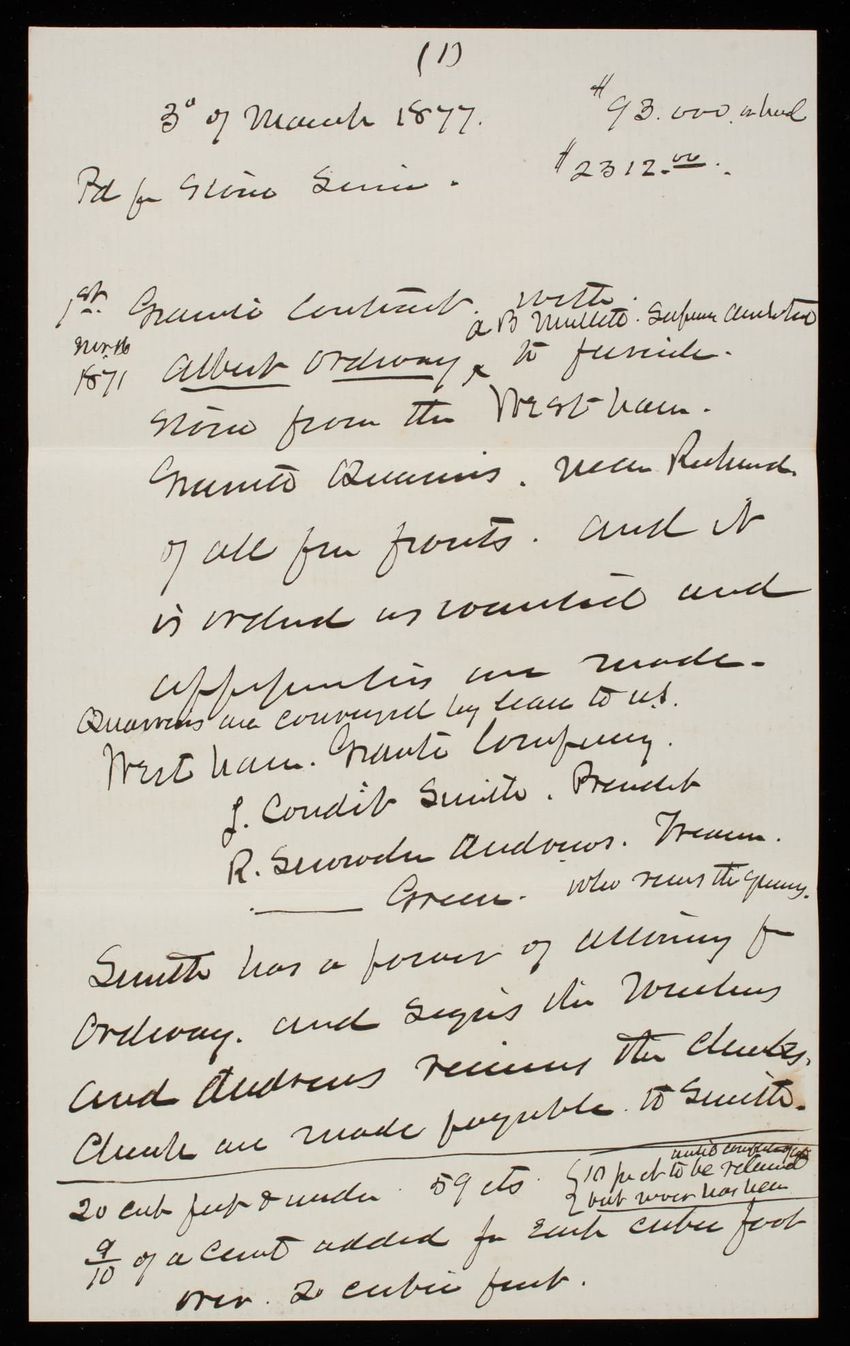 (1)
3d of March 1877. $93.000. in hand
Pd for Stone Since. $2312.00.
1st Granite contract. with.
A B Mullett. Superv Architect
Nov. 16
1871 Albert Ordway ^ to furnish.
Stone from the West ham.
Granite Quarries. near Richmond.
of all four fronts. and it
is ordered as wanted and
are made.
Quarries are conveyed by lease to U.S.
West ham. Granite Company.
J. Condit Smith. President
R. Snowden Andrews. Treasurer.
Green. who runs the quarry.
Smith has a power of attorney for
Ordway. and signs the Vouchers
and Andrews receives the checks.
Checks are made payable to Smith.
20 cub feet & under. 59 cts.
until completion
10 pr ct to be retained
but never has been
9/10 of a cent added for each cubic foot
over. 20 cubic feet.